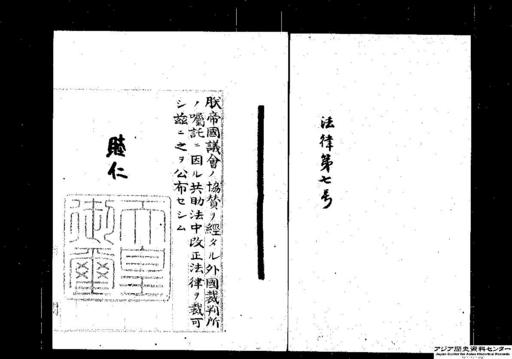 法律第七号
朕帝國議會ノ協賛ヲ經タル外國裁判所
ノ囑託ニ因ル共助法中改正法律ヲ裁可
シ茲ニ之ヲ公布セシム
睦仁
天皇
御璽
アジア歴史資料センター
Japan Center for Asian Historical Records